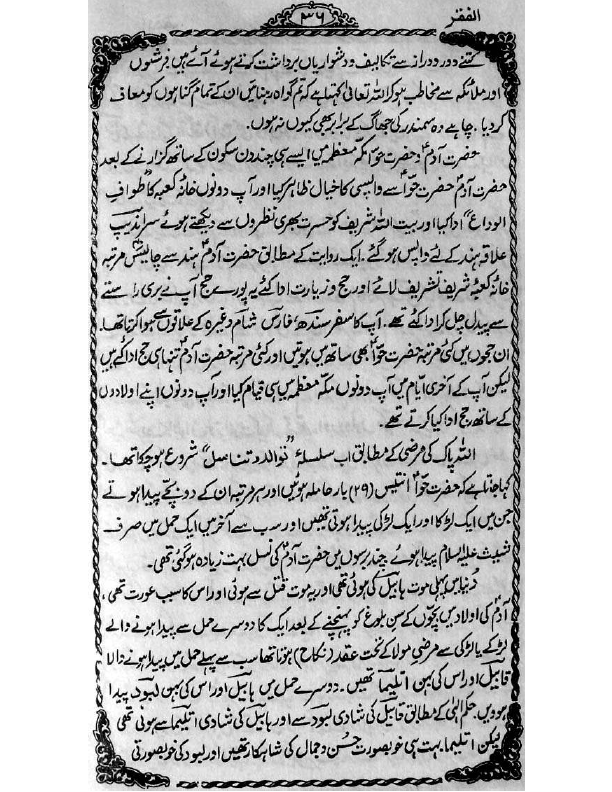 الفقر
۳۶
کتنے دور دراز سے تکالیف و دشواریاں برداشت کرتے ہوئے آئے ہیں فرشتوں
اور ملائکہ سے مخاطب ہو کر اللہ تعالیٰ کہتا ہے کہ تم گواہ رہنا میں ان کے تمام گناہوں کو معاف
کر دیا۔ چاہے وہ سمندر کی جھاگ کے برابر بھی کیوں نہ ہوں۔
حضرت آدمؑ و حضرت حوّاؑ مکہ معظمہ میں ایسے ہی چند دن سکون کے ساتھ گزارنے کے بعد
حضرت آدمؑ حضرت حوّاؑ سے واپسی کا خیال ظاہر کیا اور آپ دونوں خانۂ کعبہ کا "طوافِ
الوداع" ادا کیا اور بیت اللہ شریف کو حسرت بھری نظروں سے دیکھتے ہوئے سراندیپ
علاقہ ہند کے لئے واپس ہو گئے۔ ایک روایت کے مطابق حضرت آدمؑ ہند سے چالیس مرتبہ
خانۂ کعبۃ شریف تشریف لائے اور حج و زیارت ادا کئے یہ پورے حج آپ نے بری راستے
سے پیدل چل کر ادا کئے تھے۔ آپ کا سفر سندھ، فارس شام وغیرہ کے علاقوں سے ہوا کرتا تھا۔
ان حجوں میں کئی مرتبہ حضرت حوّاؑ بھی ساتھ میں ہوتیں اور کئی مرتبہ حضرت آدمؑ تنہا ہی حج ادا کئے ہیں
لیکن آپ کے آخری ایّام میں آپ دونوں مکّہ معظمہ میں ہی قیام کیا اور آپ دونوں اپنے اولادوں
کے ساتھ حج ادا کیا کرتے تھے۔
اللہ پاک کی مرضی کے مطابق اب سلسلۂ "توالد و تناسل" شروع ہو چکا تھا۔
کہا جاتا ہے کہ حضرت حوّاؑ انتیس (۲۹) بار حاملہ ہوئیں اور ہر مرتبہ ان کے دو بچے پیدا ہوتے
جن میں ایک لڑکا اور ایک لڑکی پیدا ہوتی تھیں اور سب سے آخر میں ایک حمل میں صرف
شیث علیہ السلام پیدا ہوئے چند برسوں میں حضرت آدمؑ کی نسل بہت زیادہ ہو گئی تھی۔
دُنیا میں پہلی موت ہابیل کی ہوئی تھی اور یہ موت قتل سے ہوئی اور اس کا سبب عورت تھی،
آدمؑ کی اولاد میں بچّوں کے سن بلوغ کو پہنچنے کے بعد ایک کا دوسرے حمل سے پیدا ہونے والے
لڑکے یا لڑکی سے مرضیِ مولا کے تحت عقد (نکاح) ہونا تھا سب سے پہلے حمل میں پیدا ہونے والا
قابیل اور اس کی بہن اقلیما تھیں۔ دوسرے حمل میں ہابیل اور اس کی بہن لبود پیدا
ہوویں۔ حکم الٰہی کے مطابق قابیل کی شادی لبود سے اور ہابیل کی شادی اقلیما سے ہوئی تھی
لیکن اقلیما۔ بہت ہی خوبصورت حُسن و جمال کی شاہکار تھیں اور لبود کی خوبصورتی